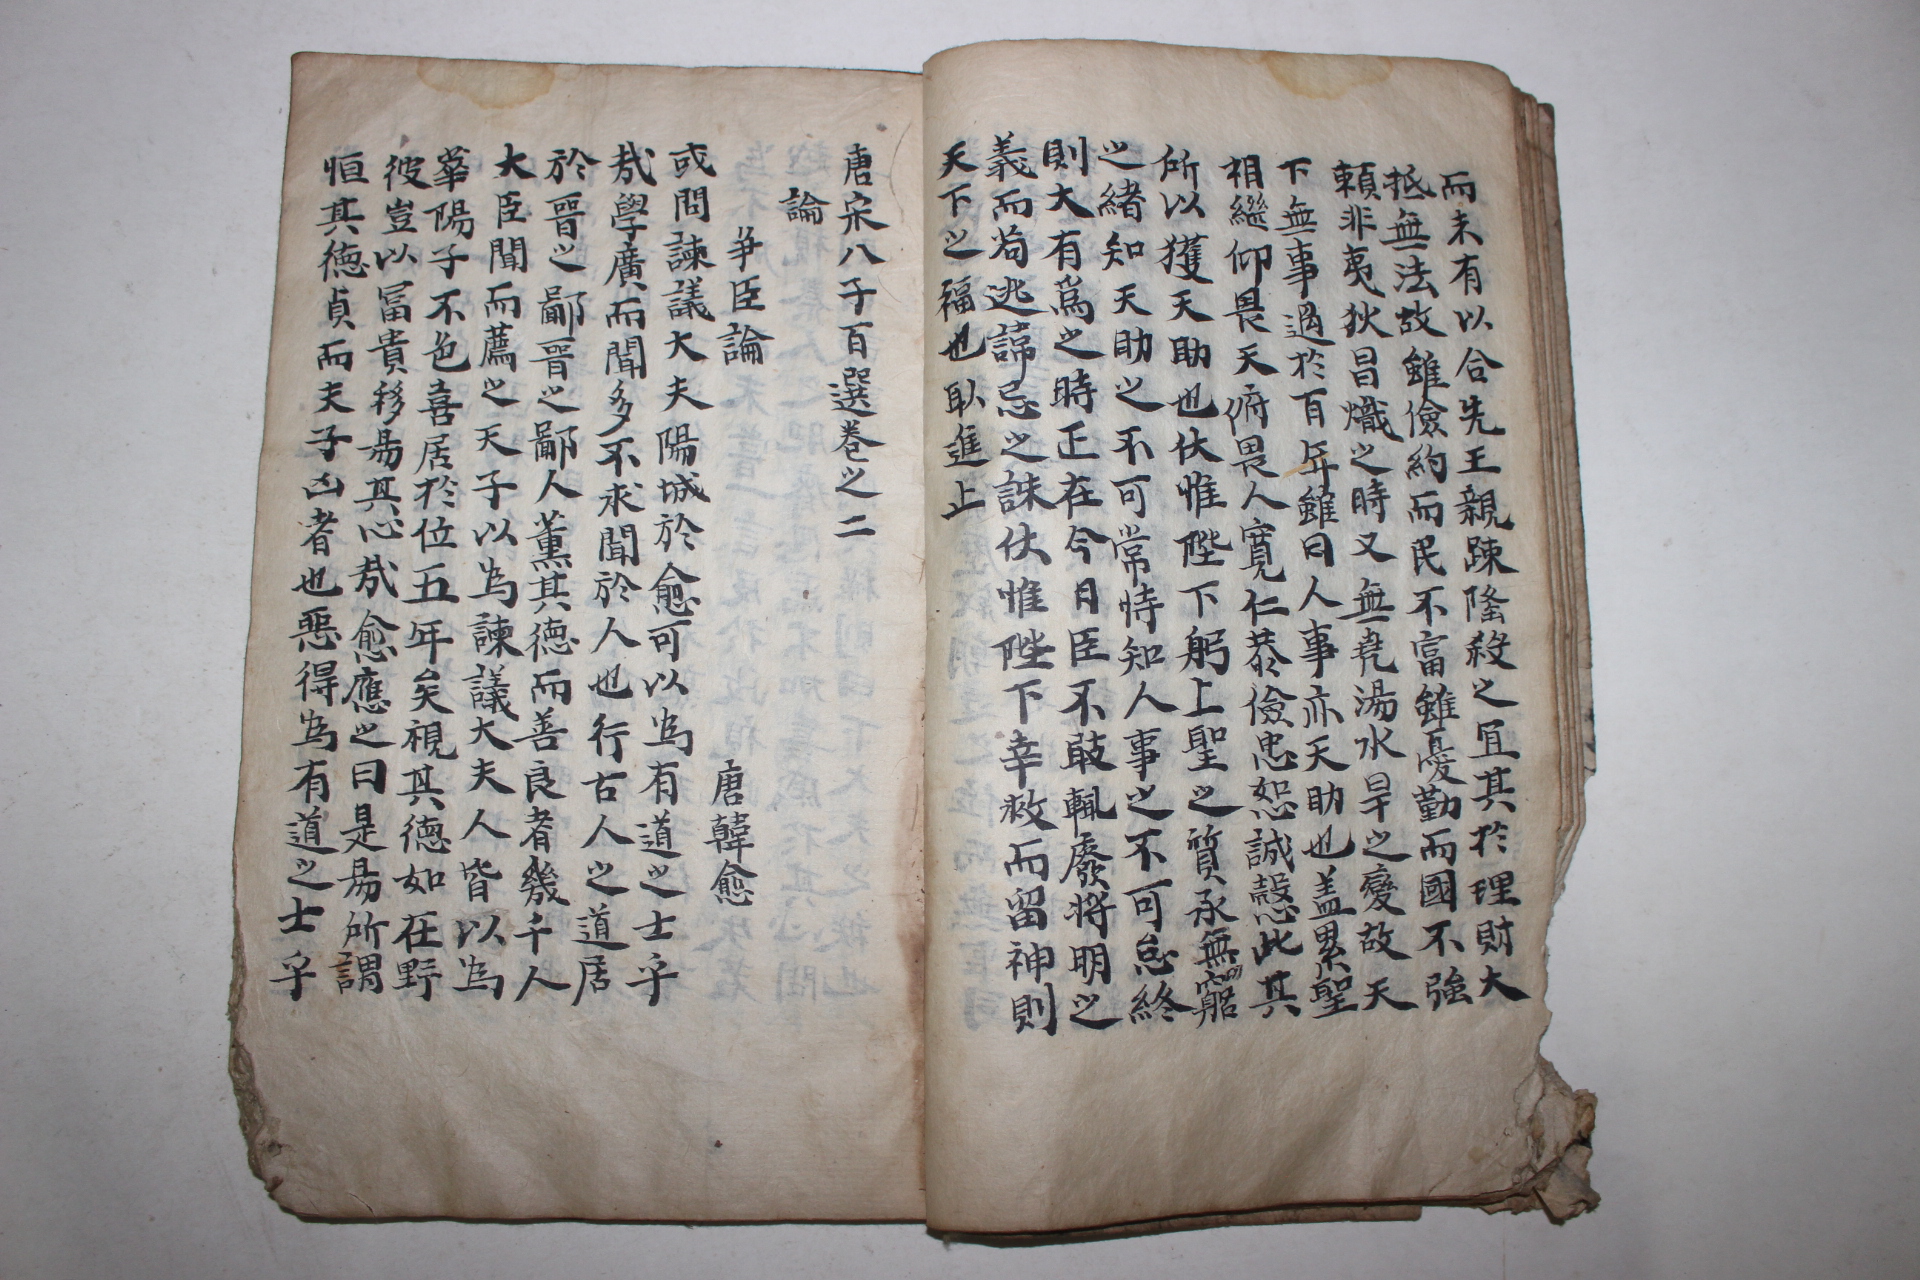 而未有以合先王親踈隆殺之宜其於理財大
抵無法故雖儉約而民不富雖憂勤而國不強
賴非夷狄昌熾之時又無堯湯水旱之變故天
下無事過於百年雖曰人事亦天助也盖累聖
相繼仰畏天俯畏人寬仁恭儉忠恕誠慤此其
所以獲天助也伏惟陛下躬上聖之質承無窮
之緖知天助之不可常恃知人事之不可怠終
則大有爲之時正在今日臣不敢輒廢將明之
義而苟逃諱忌之誅伏惟陛下幸赦而留神則
天下之福也取進止
唐宋八子百選卷之二
論
爭臣論 唐韓愈
或問諫議大夫陽城於愈可以為有道之士乎
哉學廣而聞多不求聞於人也行古人之道居
於晉之鄙晉之鄙人薰其德而善良者幾千人
大臣聞而薦之天子以為諫議大夫人皆以為
華陽子不色喜居於位五年矣視其德如在野
彼豈以冨貴移昜其心哉愈應之曰是昜所謂
恒其德貞而夫子凶者也惡得為有道之士乎